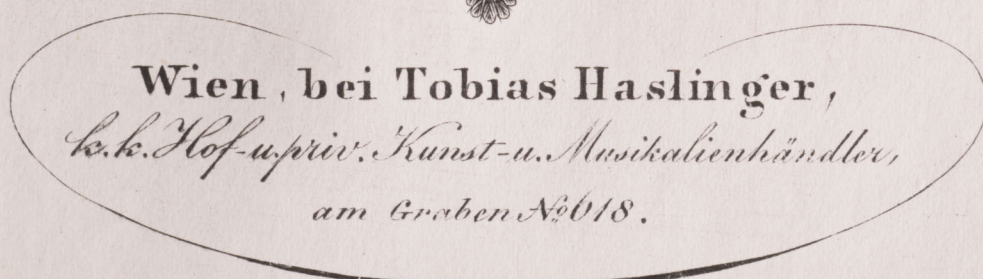 Wien, bei Tobias Haslinger,
k.k. Hof- u. priv. Kunst- u. Musikalienhändler,
am Graben No 618.